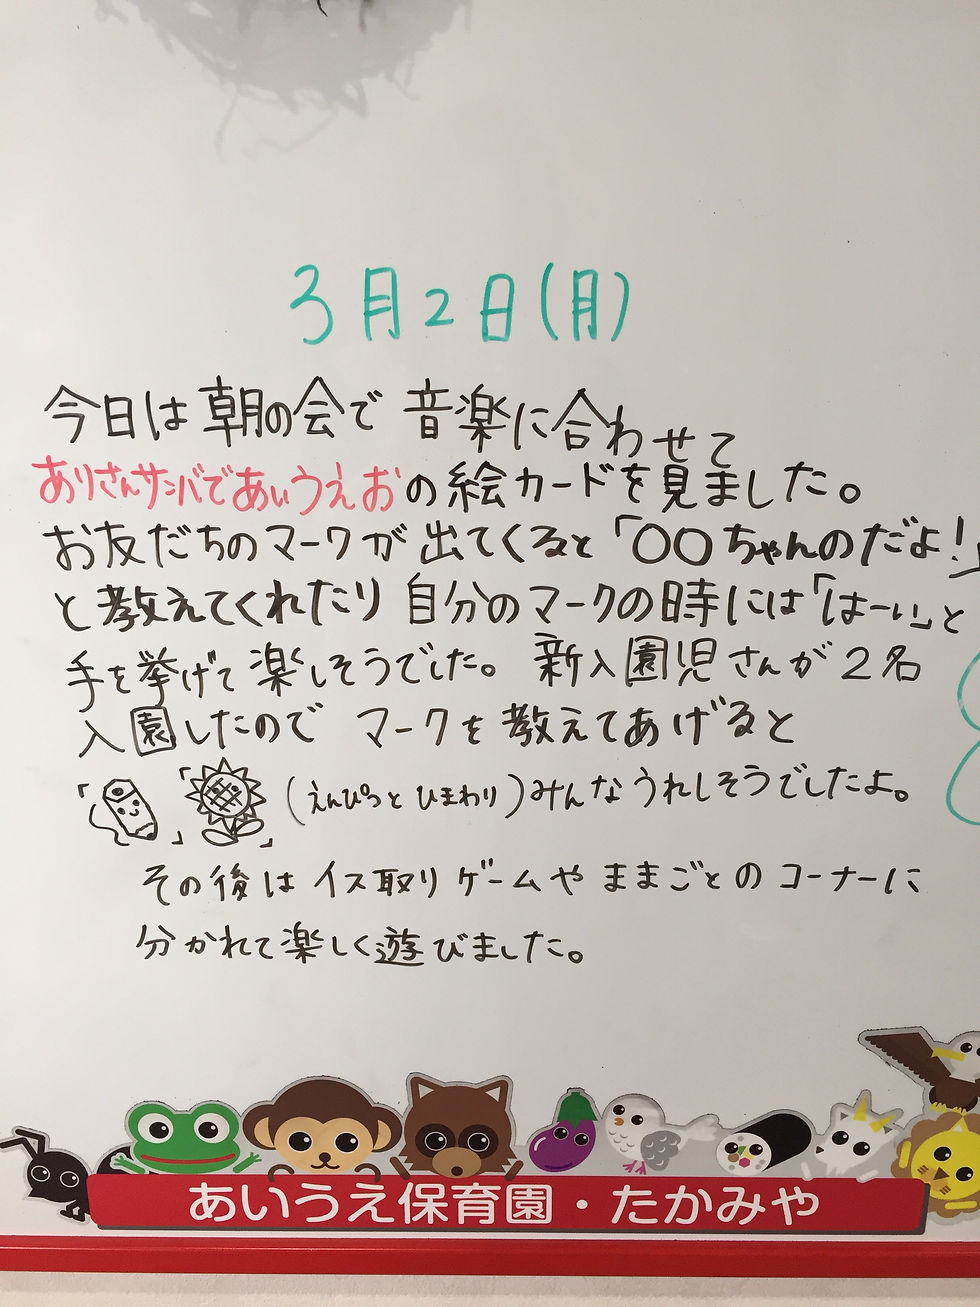 3月2日(月)
今日は朝の会で 音楽に合わせて
ありさんサンバであいうえおの絵カードを見ました。
お友だちのマークが出てくると「〇〇ちゃんのだよ!」
と教えてくれたり 自分のマークの時には「はーい」と
手を挙げて楽しそうでした。 新入園児さんが2名
入園したので マークを教えてあげると
「 」「 」(えんぴつと ひまわり)みんなうれしそうでしたよ。
その後は イス取りゲームや ままごとのコーナーに
分かれて楽しく遊びました。
あいうえ保育園・たかみや